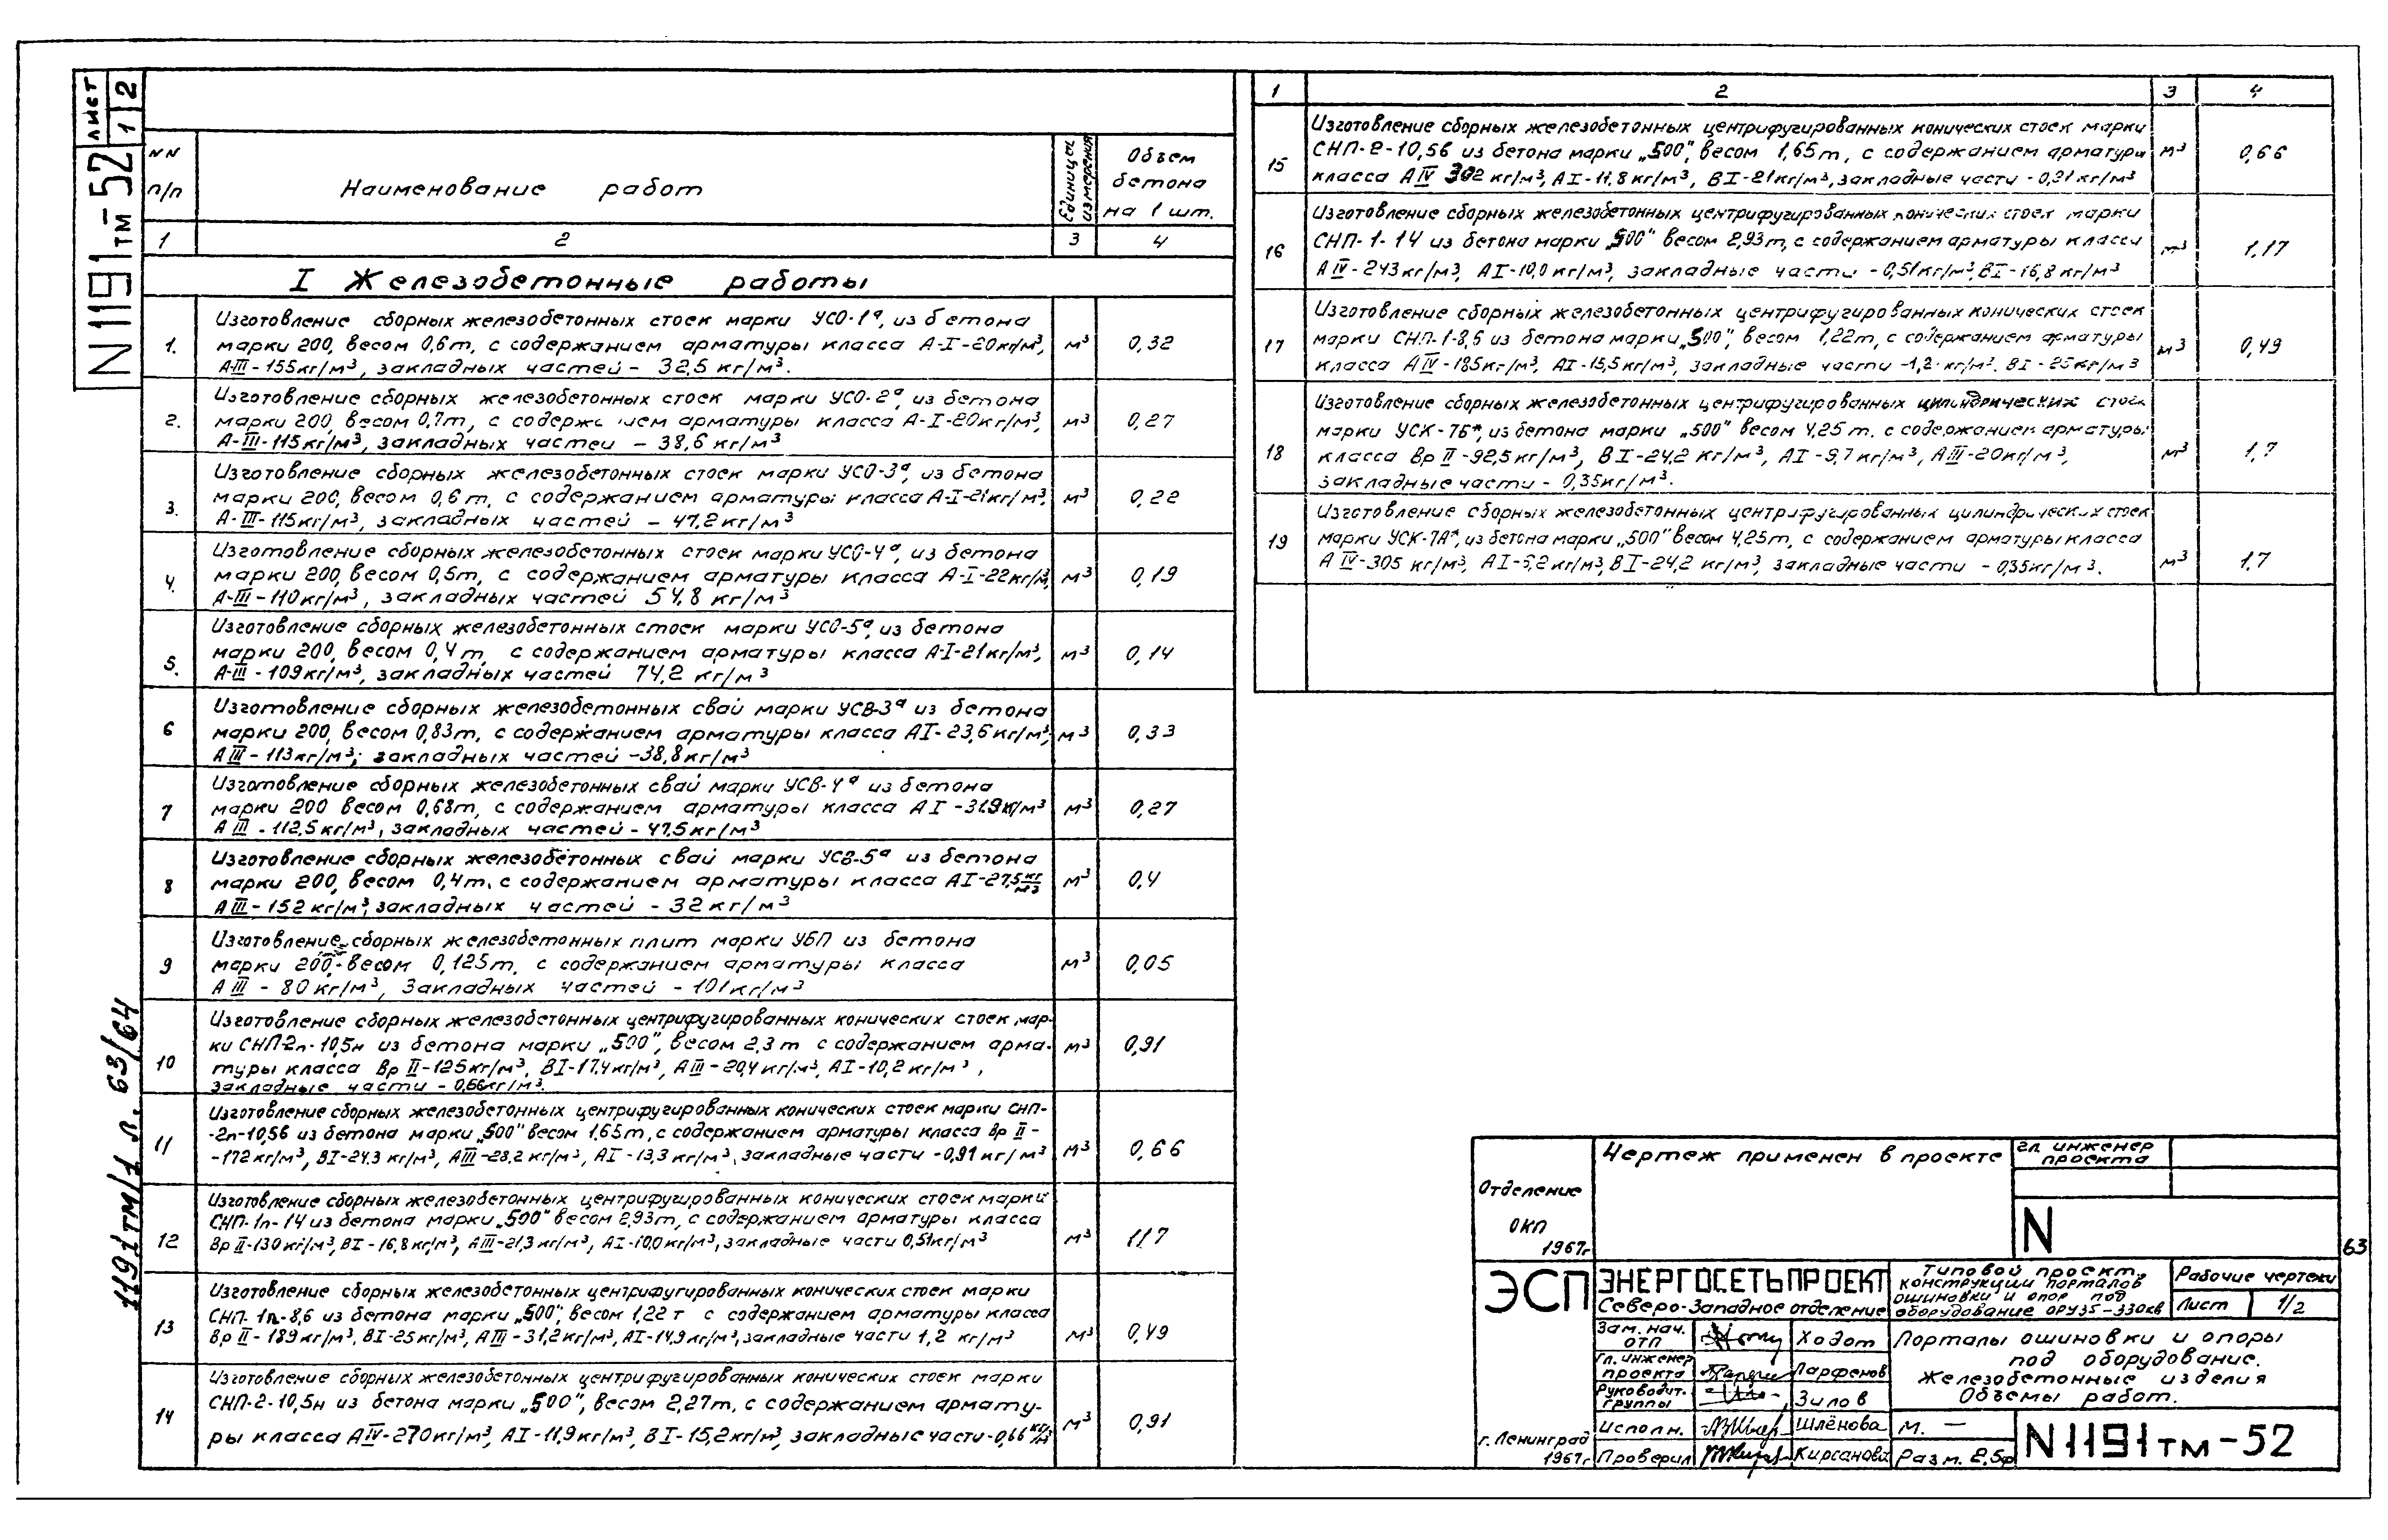 лист
1 2
N 1191тм-52
NN п/п
Наименование работ
Единица измерения
Объем бетона на 1 шт.
1 2 3 4
I Железобетонные работы
Изготовление сборных железобетонных стоек марки УСО-1а, из бетона
1. марки 200, весом 0,6т, с содержанием арматуры класса А-I-20кг/м³, м³ 0,32
А-III-155кг/м³, закладных частей - 32,5 кг/м³.
Изготовление сборных железобетонных стоек марки УСО-2а, из бетона
2. марки 200, весом 0,7т, с содержанием арматуры класса А-I-20кг/м³, м³ 0,27
А-III-115кг/м³, закладных частей - 38,6 кг/м³
Изготовление сборных железобетонных стоек марки УСО-3а, из бетона
3. марки 200, весом 0,6т, с содержанием арматуры класса А-I-21кг/м³, м³ 0,22
А-III-115кг/м³, закладных частей - 47,2кг/м³
Изготовление сборных железобетонных стоек марки УСО-4а, из бетона
4. марки 200, весом 0,5т, с содержанием арматуры класса А-I-22кг/м³, м³ 0,19
А-III-110кг/м³, закладных частей 54,8 кг/м³
Изготовление сборных железобетонных стоек марки УСО-5а, из бетона
5. марки 200, весом 0,4т, с содержанием арматуры класса А-I-21кг/м³, м³ 0,14
А-III-109кг/м³, закладных частей 74,2 кг/м³
Изготовление сборных железобетонных свай марки УСВ-3а из бетона
6 марки 200, весом 0,83т, с содержанием арматуры класса АI-23,6кг/м³, м³ 0,33
АIII-113кг/м³; закладных частей -38,8кг/м³
Изготовление сборных железобетонных свай марки УСВ-4а из бетона
7 марки 200 весом 0,68т, с содержанием арматуры класса АI-31.9кг/м³ м³ 0,27
АIII-112,5кг/м³, закладных частей - 47.5кг/м³
Изготовление сборных железобетонных свай марки УСВ-5а из бетона
8 марки 200, весом 0,4т. с содержанием арматуры класса АI-27,5 кг/м³ м³ 0,4
АIII-152кг/м³, закладных частей - 32кг/м³
Изготовление сборных железобетонных плит марки УБП из бетона
9 марки 200, весом 0,125т, с содержанием арматуры класса м³ 0,05
АIII - 80кг/м³, Закладных частей - 101кг/м³
Изготовление сборных железобетонных центрифугированных конических стоек мар-
ки СНП-2п-10,5н из бетона марки „500", весом 2,3т с содержанием арма- м³ 0,91
10 туры класса Вр II-125кг/м³, ВI-17,4кг/м³, АIII-20,4кг/м³, АI-10,2кг/м³,
закладные части - 0,66кг/м³.
Изготовление сборных железобетонных центрифугированных конических стоек марки СНП-
11 -2п-10,5б из бетона марки „500" весом 1.65т, с содержанием арматуры класса Вр II-
-172кг/м³, ВI-24,3 кг/м³, АIII-28,2кг/м³, АI-13,3кг/м³, закладные части -0,91кг/м³ м³ 0,66
Изготовление сборных железобетонных центрифугированных конических стоек марки
СНП-1п-14 из бетона марки „500" весом 2,93т, с содержанием арматуры класса
12 Вр II-130кг/м³, ВI-16,8кг/м³, АIII-21,3кг/м³, АI-10,0кг/м³, закладные части 0,51кг/м³ м³ 1.17
Изготовление сборных железобетонных центрифугированных конических стоек марки
СНП-1п-8,6 из бетона марки „500", весом 1,22т с содержанием арматуры класса
13 Вр II-189кг/м³, ВI-25кг/м³, АIII-31,2кг/м³, АI-14,9кг/м³, закладные части 1,2 кг/м³ м³ 0,49
Изготовление сборных железобетонных центрифугированных конических стоек марки
14 СНП-2-10,5н из бетона марки „500", весом 2,27т, с содержанием армату-
ры класса АIV-270кг/м³, АI-11,9кг/м³, ВI-15,2кг/м³, закладные части-0,66 кг/м³ м³ 0,91
1191тм/1 л. 63/64
1 2 3 4
Изготовление сборных железобетонных центрифугированных конических стоек марки
15 СНП-2-10,5б из бетона марки „500", весом 1,65т, с содержанием арматуры м³ 0,66
класса АIV 302 кг/м³, АI-11,8кг/м³, ВI-21кг/м³, закладные части - 0,91кг/м³
Изготовление сборных железобетонных центрифугированных конических стоек марки
16 СНП-1-14 из бетона марки „500" весом 2,93т, с содержанием арматуры класса м³ 1,17
АIV-243кг/м³, АI-10,0кг/м³, закладные части -0,51кг/м³, ВI-16,8кг/м³
Изготовление сборных железобетонных центрифугированных конических стоек
17 марки СНП-1-8,6 из бетона марки „500", весом 1,22т, с содержанием арматуры м³ 0,49
класса АIV-185кг/м³, АI-15,5кг/м³, закладные части -1,2 кг/м³. ВI-25кг/м³
Изготовление сборных железобетонных центрифугированных цилиндрических стоек
марки УСК-7Б*, из бетона марки „500" весом 4,25т. с содержанием арматуры
18 класса Вр II-92,5кг/м³, ВI-24,2 кг/м³, АI-5,7кг/м³, АIII-20кг/м³, м³ 1.7
закладные части - 0,35кг/м³.
Изготовление сборных железобетонных центрифугированных цилиндрических стоек
19 марки УСК-7А*, из бетона марки „500" весом 4,25т, с содержанием арматуры класса
АIV-305 кг/м³, АI-5,2кг/м³, ВI-24,2 кг/м³, закладные части - 0,35кг/м³. м³ 1.7
Отделение
ОКП
1967г
Чертеж применен в проекте
гл. инженер проекта
N
63
ЭСП
ЭНЕРГОСЕТЬПРОЕКТ
Северо-Западное отделение
Типовой проект.
конструкции порталов
ошиновки и опор под
оборудование ОРУ35-330кв
Рабочие чертежи
Лист 1/2
Зам. нач. ОТП Ходот
Гл. инженер проекта Парфенов
Руководит. группы Зилов
Исполн. Шлёнова
Проверил Кирсанова
Порталы ошиновки и опоры
под оборудование.
Железобетонные изделия
Объемы работ.
г. Ленинград
1967г
М. —
Разм. 2,5ф
N1191тм-52